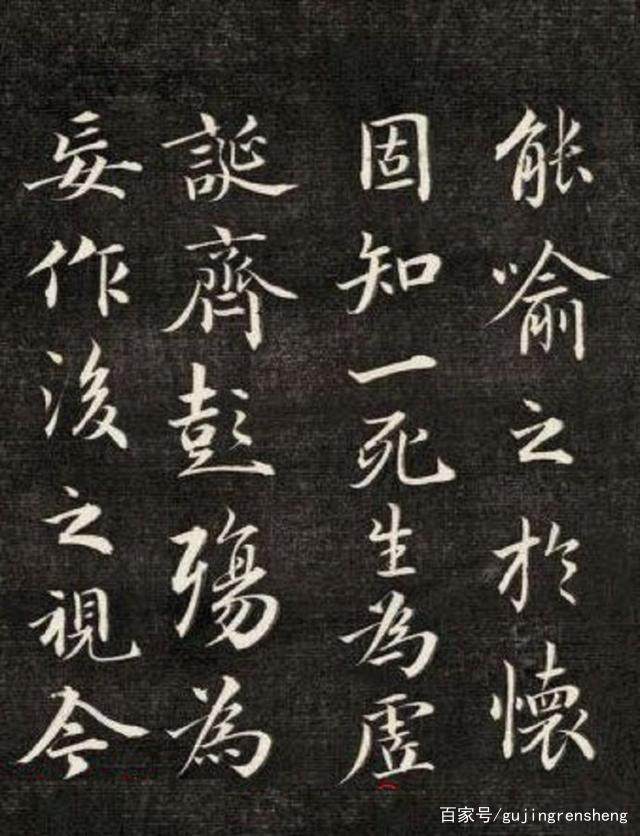 能喻之於懷
固知一死生為虛
誕齊彭殤為
妄作後之視今
百家号/gujingrensheng